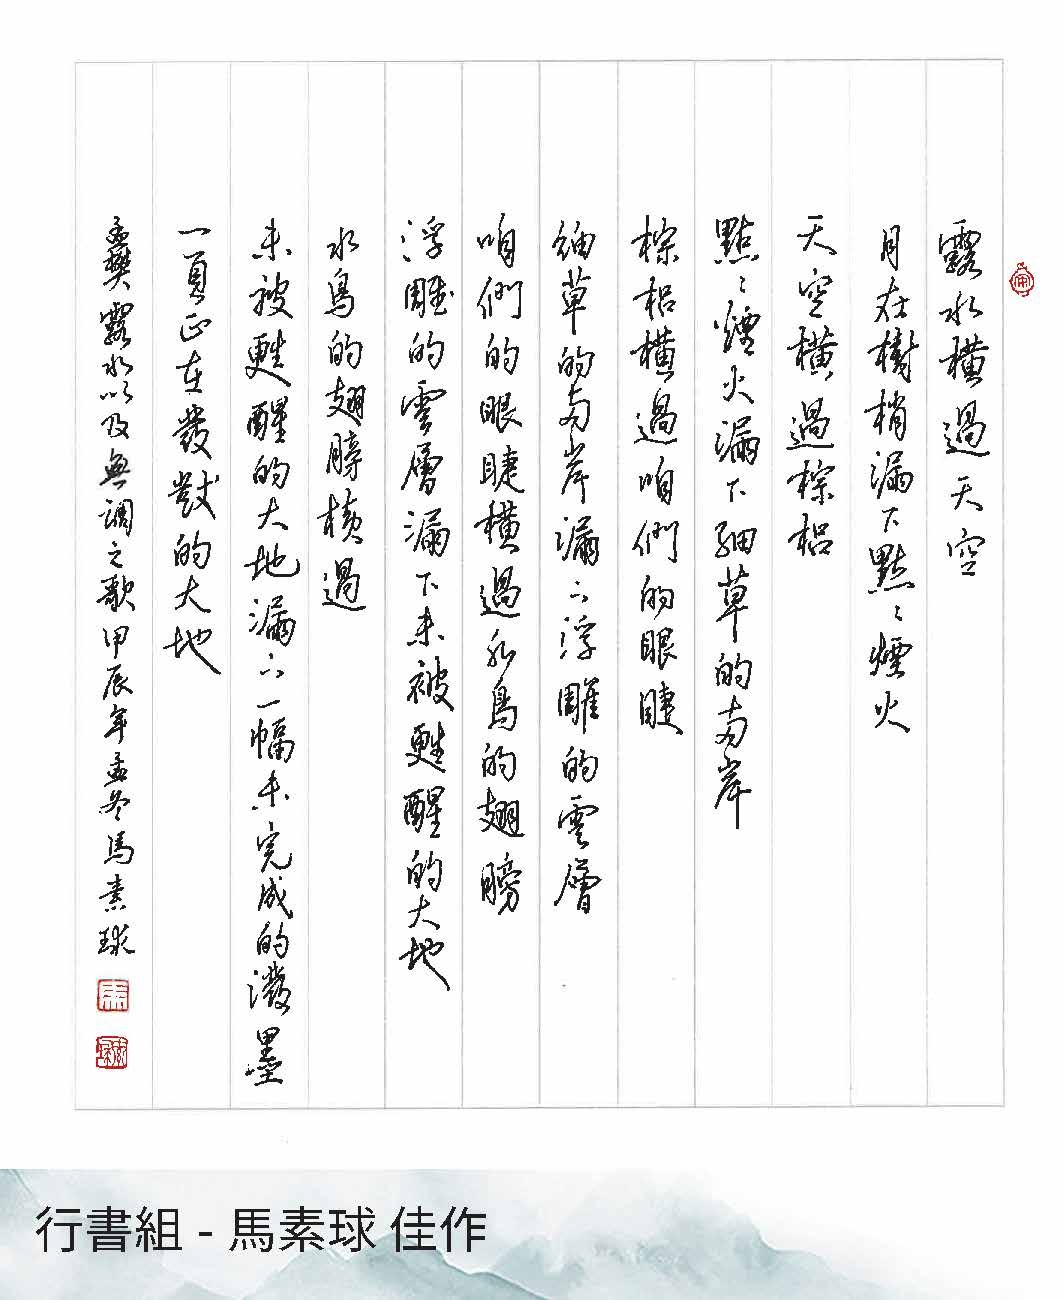 露水橫過天空
月在樹梢漏下點點煙火
天空橫過棕梠
點點煙火漏下細草的兩岸
棕梠橫過咱們的眼睫
細草的兩岸漏下浮雕的雲層
咱們的眼睫橫過水鳥的翅膀
浮雕的雲層漏下未被甦醒的大地
水鳥的翅膀橫過
未被甦醒的大地漏下一幅未完成的潑墨
一頁正在發獃的大地
孟樊露水以及無調之歌甲辰年孟冬馬素球
行書組 - 馬素球 佳作